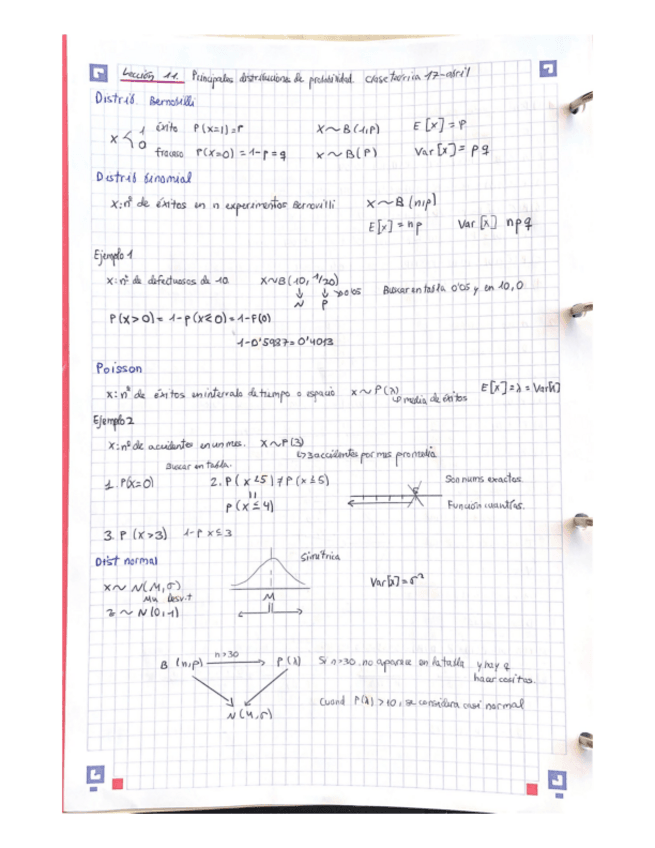 Lección 11. Principales distribuciones de probabilidad. Clase teórica 17-abril
Distrib. Bernoulli
x 1 éxito P(x=1)=P x~B(1,P) E[x]=P
0 fracaso P(x=0)=1-P=q x~B(P) Var[x]=pq
Distrib binomial
x: nº de éxitos en n experimentos Bernoulli x~B(n,p)
E[x]=np Var[x] npq
Ejemplo 1
x: nº de defectuosos de 10 x~B(10, 1/20)
↓ ↓ →0'05 Buscar en tabla 0'05 y en 10,0
N P
P(x>0) = 1-P(x≤0) = 1-P(0)
1-0'5987=0'4013
Poisson
x: nº de éxitos en intervalo de tiempo o espacio x~P(λ) E[x]=λ=Var[x]
↳ media de éxitos
Ejemplo 2
x: nº de accidentes en un mes. x~P(3)
↳ 3 accidentes por mes promedio
Buscar en tabla.
1. P(x=0) 2. P(x<5) ≠ P(x≤5) Son nums exactos.
"
P(x≤4) Función cuantías.
3. P(x>3) 1-P x≤3
Dist normal Simétrica
x~N(M,σ) Var[x]=σ²
Mu Desv.t M
z~N(0,1)
B(n,p) n>30 P(λ) Si n>30, no aparece en la tabla y hay q
hacer cositas.
N(M,σ) Cuand P(λ)>10, se considera casi normal